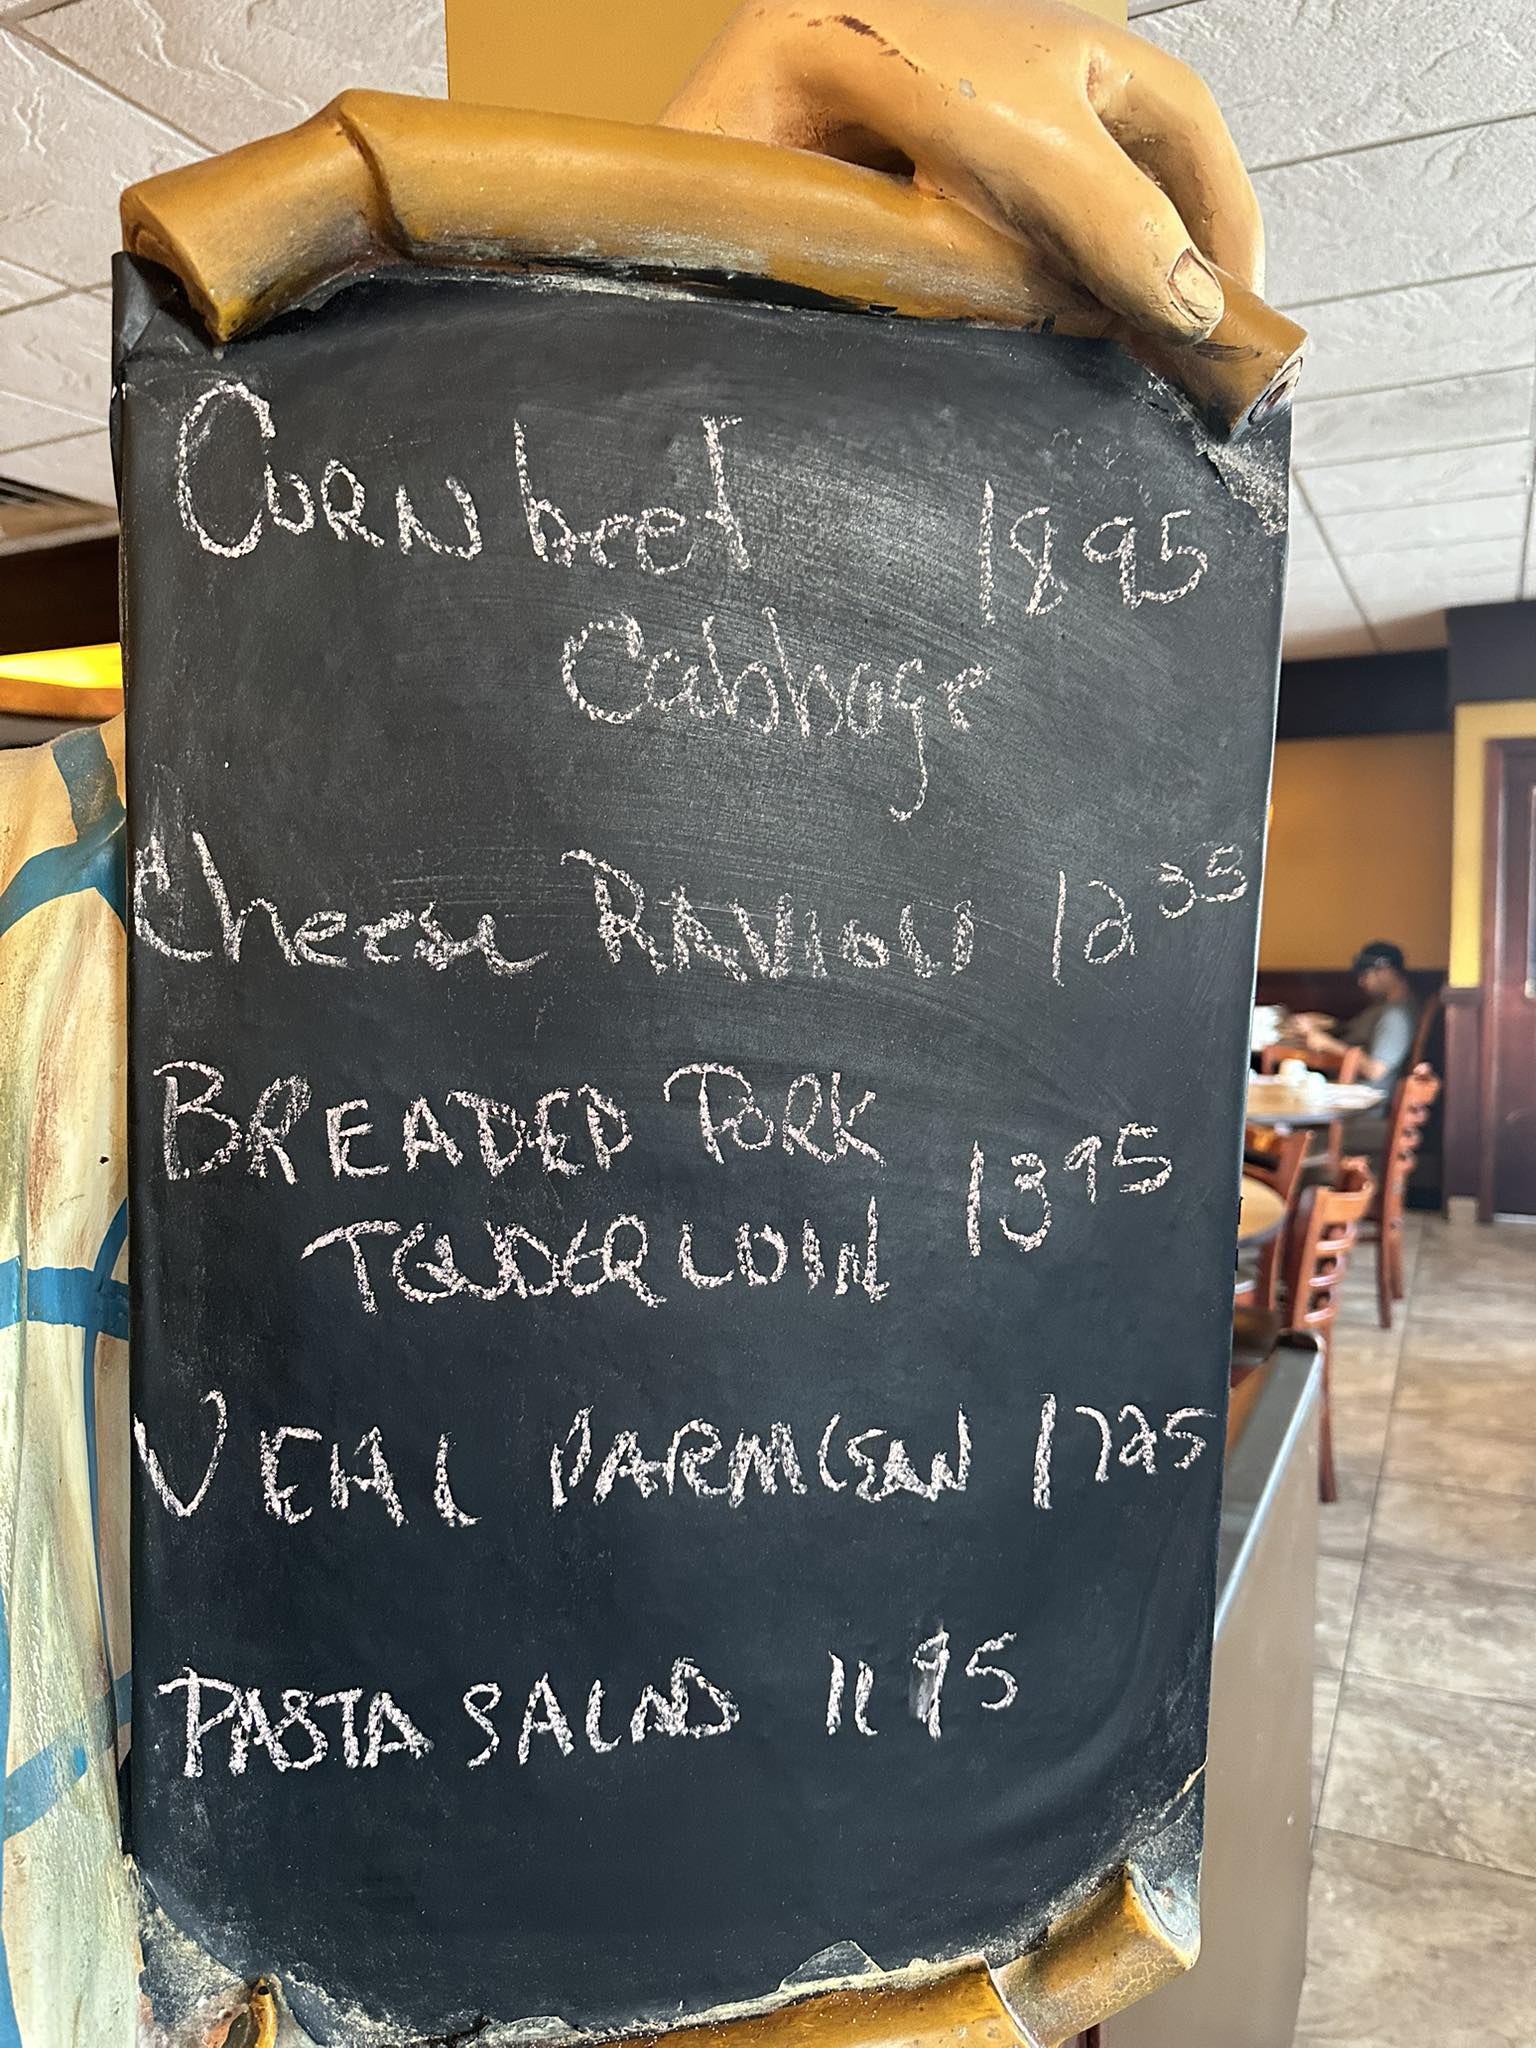 Corn beef 18 95
Cabbage
Cheese RAVIOLI 12 95
BREADED PORK
TENDERLOIN 13 95
VEAL PARMESEAN 17 25
PASTA SALAD 11 95